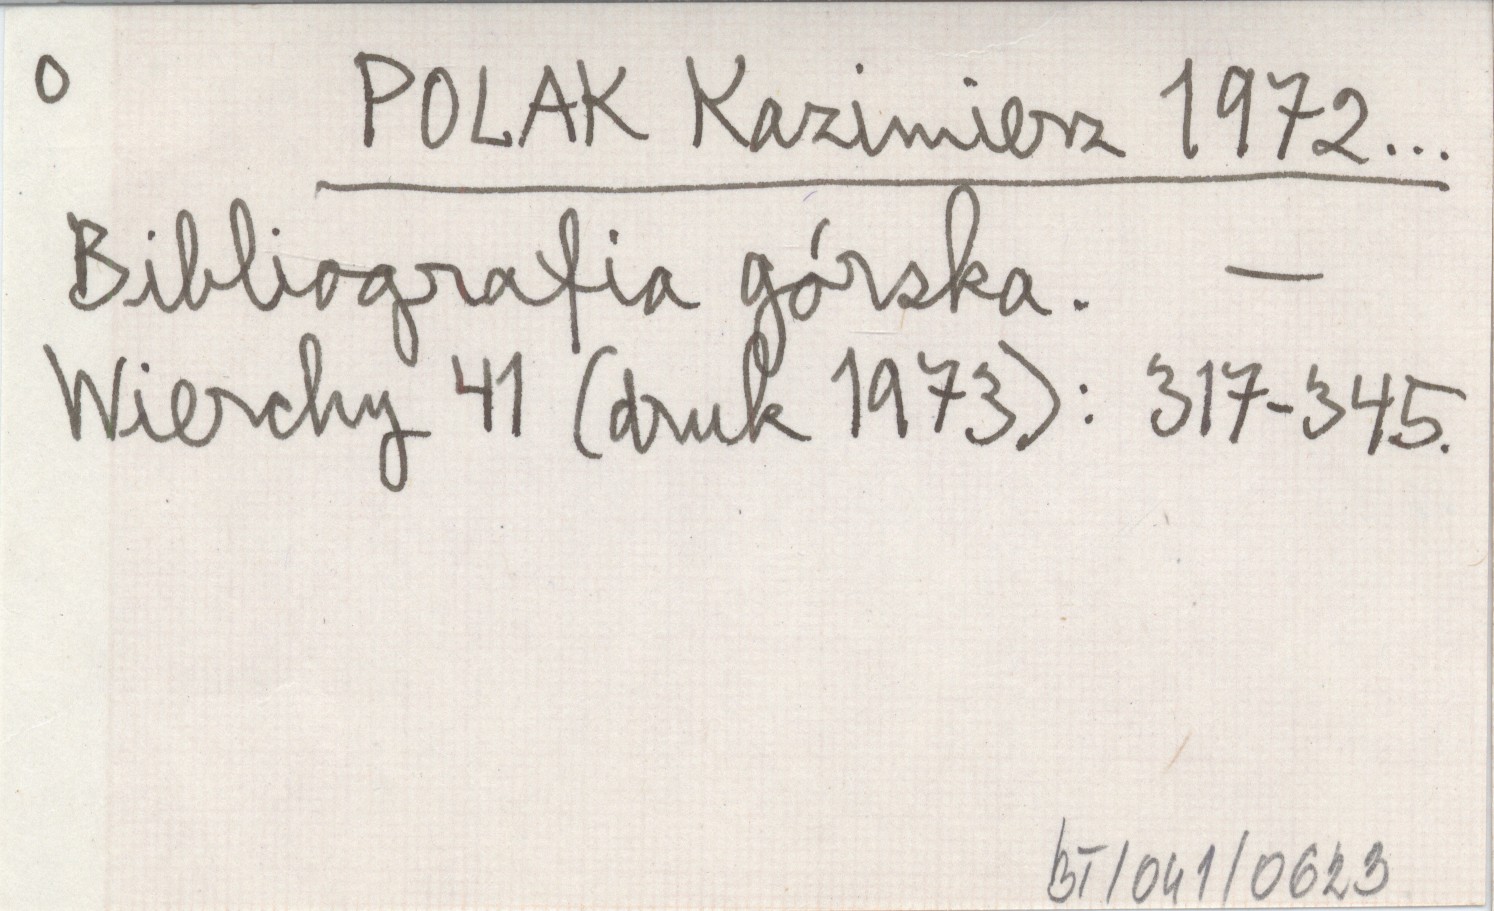 0 POLAK Kazimierz 1972...
Bibliografia górska. —
Wierchy 41 (druk 1973): 317-345.
BT/041/0623